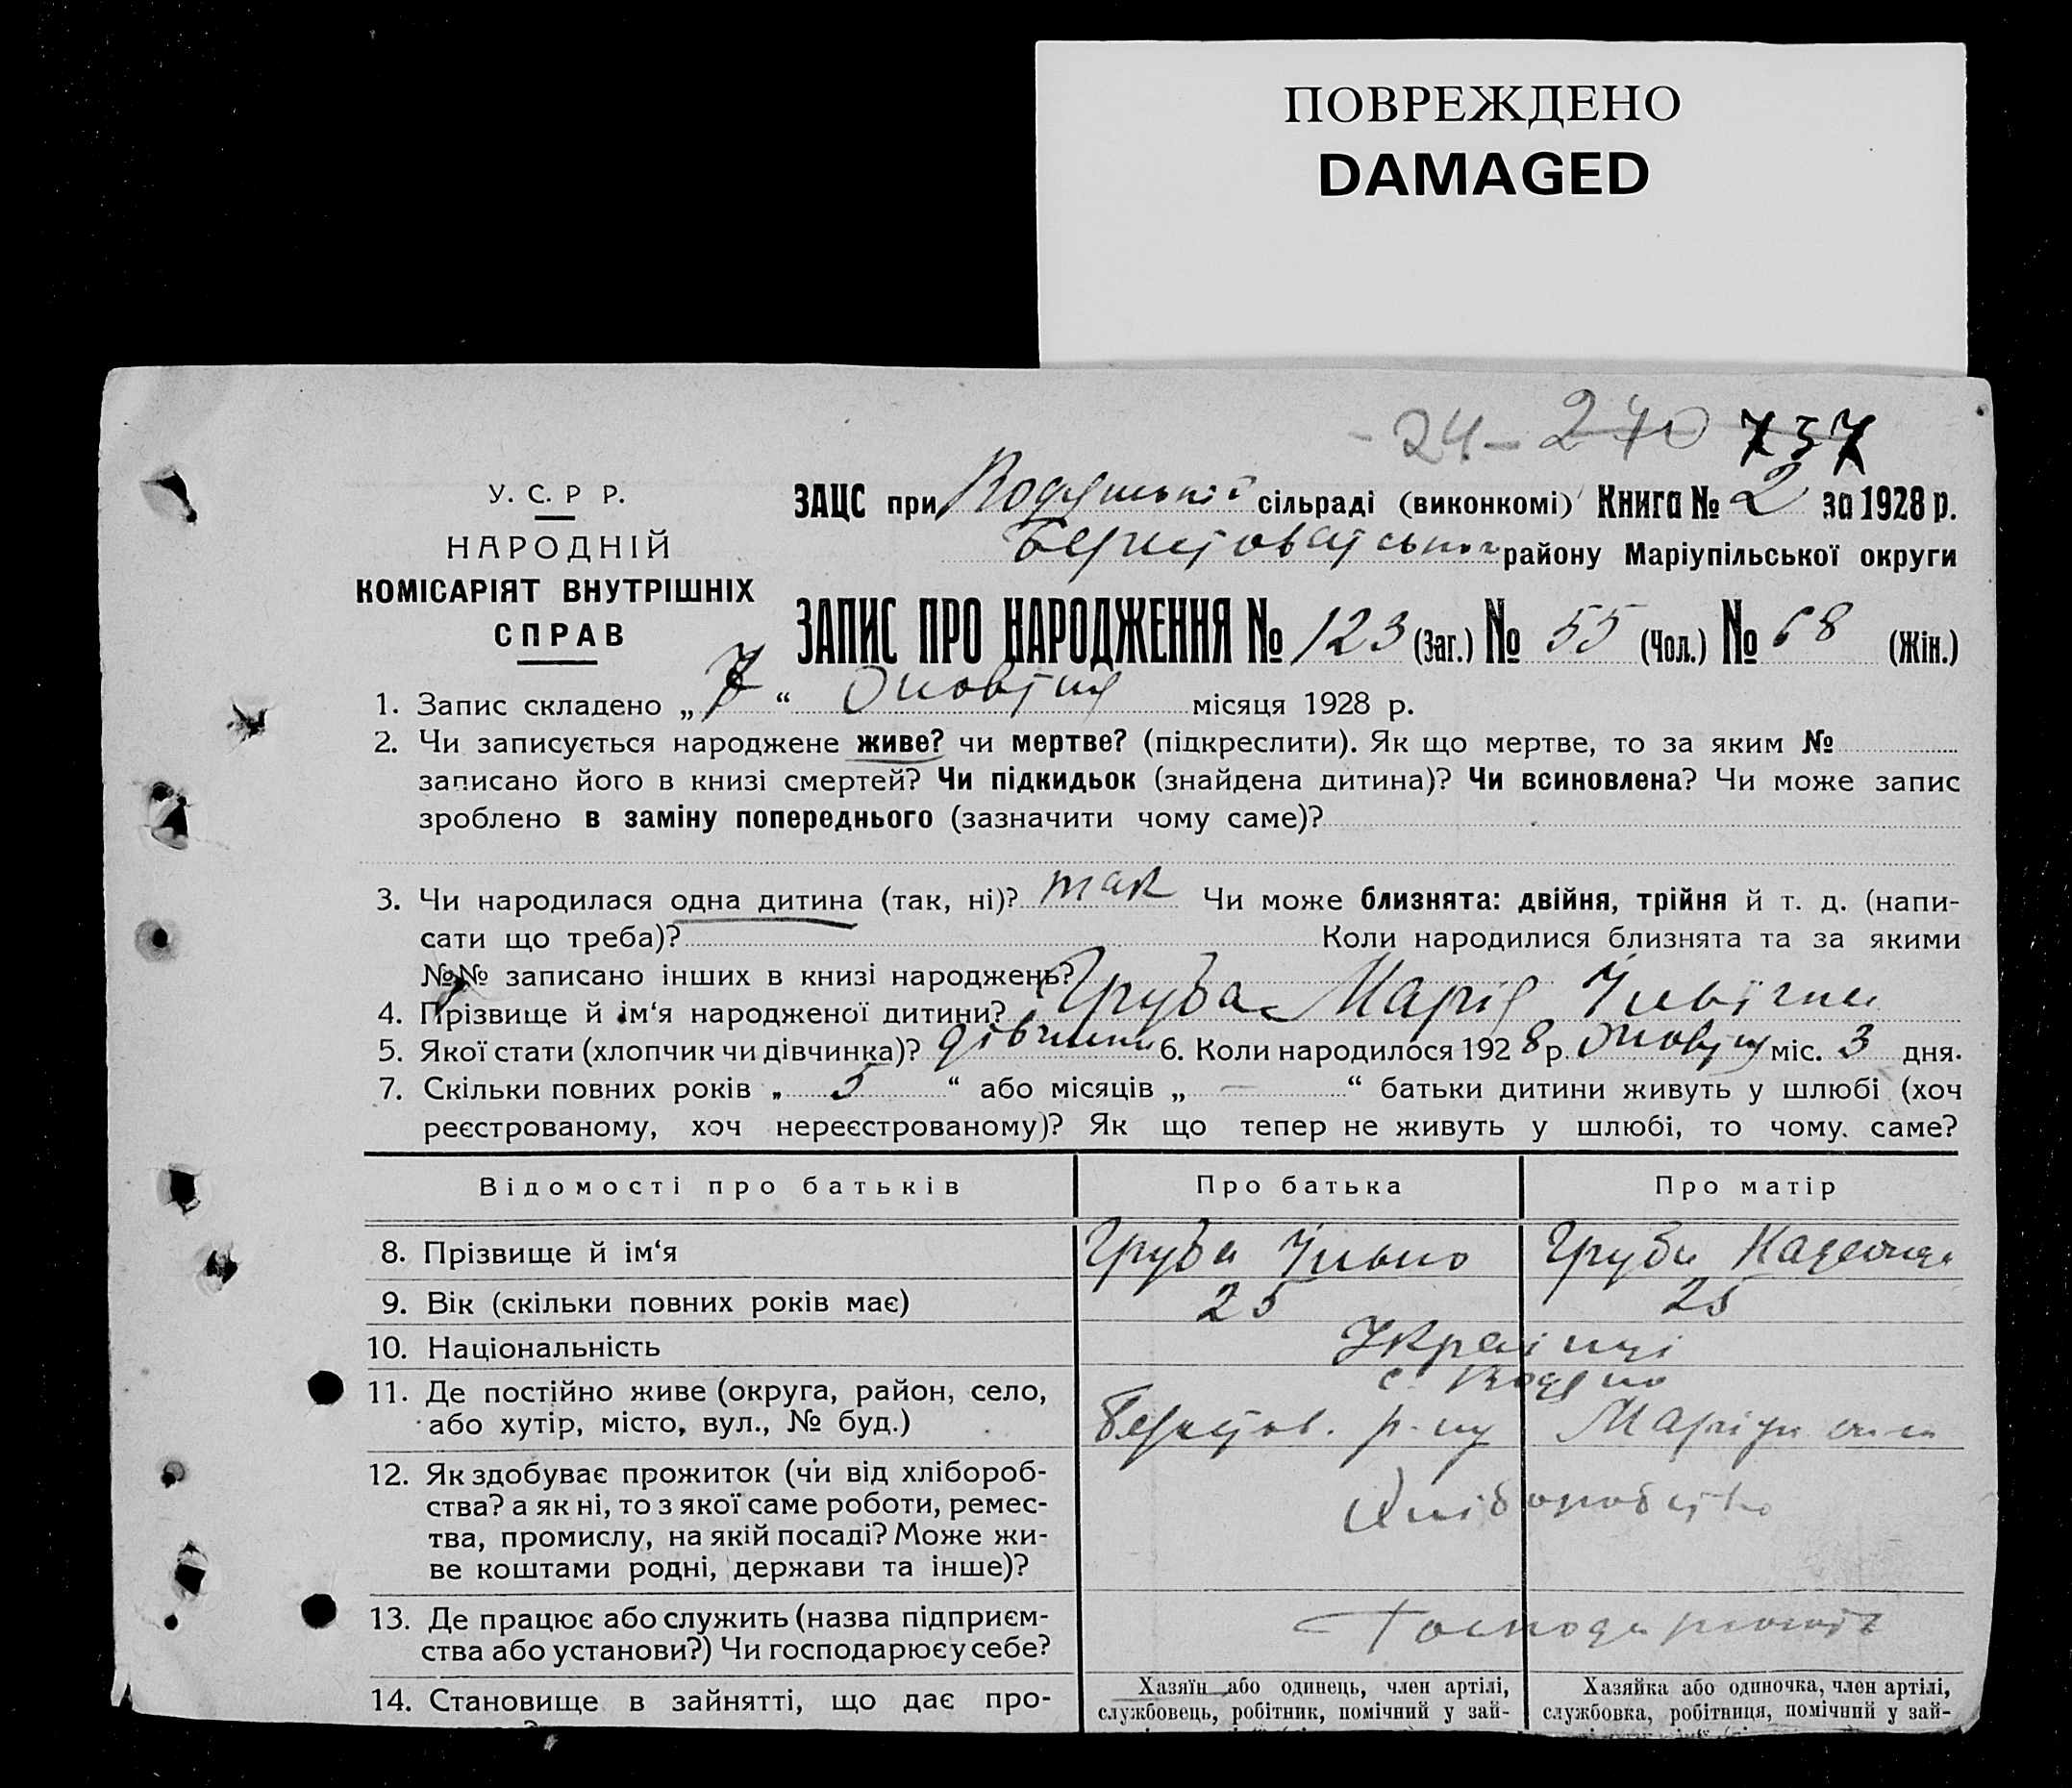 ПОВРЕЖДЕНО
DAMAGED
- 24 - 240 737
У. С. Р Р.
НАРОДНІЙ
КОМІСАРІЯТ ВНУТРІШНІХ
СПРАВ
ЗАЦС при сільраді (виконкомі) Книга № 2 за 1928 р.
району Маріупільської округи
ЗАПИС ПРО НАРОДЖЕННЯ № 123 (Заг.) № 55 (Чол.) № 68 (Жін.)
1. Запис складено „ 7 “ Жовтня місяця 1928 р.
2. Чи записується народжене живе? чи мертве? (підкреслити). Як що мертве, то за яким №
записано його в книзі смертей? Чи підкидьок (знайдена дитина)? Чи всиновлена? Чи може запис
зроблено в заміну попереднього (зазначити чому саме)?
3. Чи народилася одна дитина (так, ні)? так Чи може близнята: двійня, трійня й т. д. (напи-
сати що треба)? Коли народилися близнята та за якими
№№ записано інших в книзі народжень?
4. Прізвище й ім‘я народженої дитини? Груба Марія
5. Якої стати (хлопчик чи дівчинка)? дівчинка 6. Коли народилося 1928 р. Жовтня міс. 3 дня.
7. Скільки повних років „ 5 “ або місяців „ — “ батьки дитини живуть у шлюбі (хоч
реєстрованому, хоч нереєстрованому)? Як що тепер не живуть у шлюбі, то чому. саме?
Відомості про батьків Про батька Про матір
8. Прізвище й ім‘я Груба Груба
9. Вік (скільки повних років має) 25 25
10. Національність Українці
11. Де постійно живе (округа, район, село,
або хутір, місто, вул., № буд.)
12. Як здобуває прожиток (чи від хлібороб-
ства? а як ні, то з якої саме роботи, ремес-
тва, промислу, на якій посаді? Може жи-
ве коштами родні, держави та інше)?
Хліборобство
13. Де працює або служить (назва підприєм-
ства або установи?) Чи господарює у себе?
14. Становище в зайнятті, що дає про-
Хазяїн або одинець, член артілі,
службовець, робітник, помічний у зай-
Хазяйка або одиночка, член артілі,
службовка, робітниця, помічний у зай-